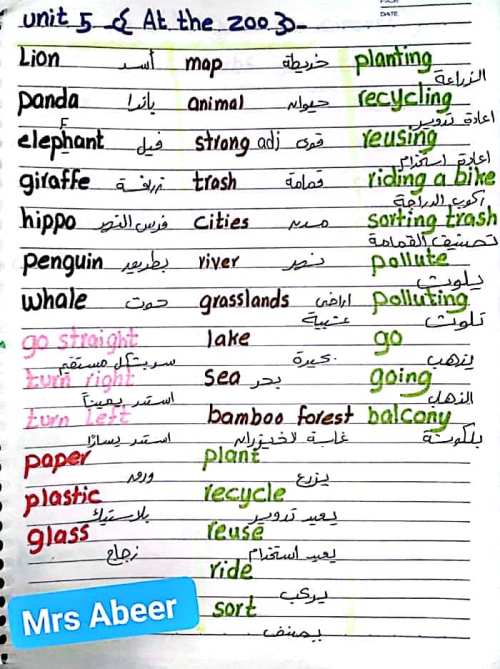 unit 5 { At the zoo }
Lion أسد map خريطة planting الزراعة
panda باندا animal حيوان recycling اعادة تدوير
elephant فيل strong adj قوى reusing اعادة استخدام
giraffe زرافة trash قمامة riding a bike ركوب الدراجة
hippo فرس النهر cities مدن sorting trash تصنيف القمامة
penguin بطريق river نهر pollute يلوث
whale حوت grasslands اراضى عشبية polluting تلوث
go straight سر بشكل مستقيم lake بحيرة go يذهب
turn right استدر يميناً sea بحر going الذهاب
turn left استدر يساراً bamboo forest غابة الخيزران balcony بلكونة
paper ورق plant يزرع
plastic بلاستيك recycle يعيد تدوير
glass زجاج reuse يعيد استخدام
ride يركب
Mrs Abeer sort يصنف
DATE